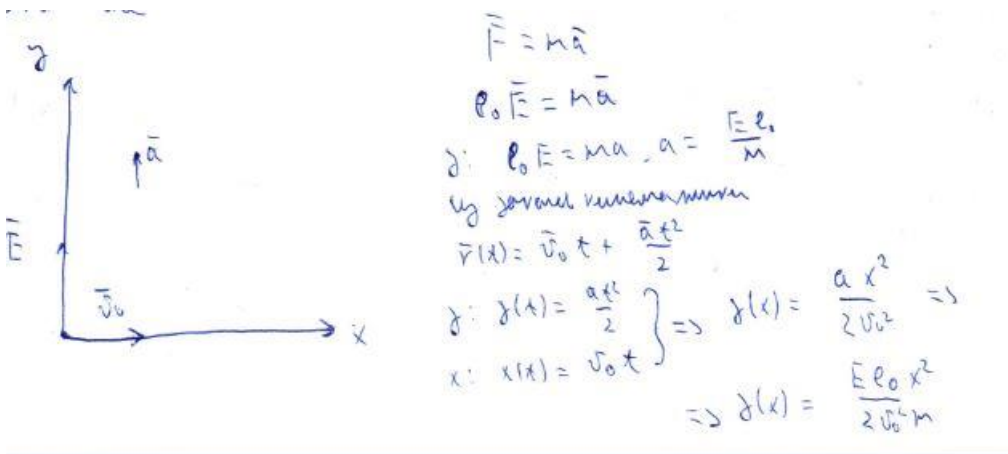 y
ā
Ē
v̄₀
x
F̄ = mā
e₀Ē = mā
y: e₀E = ma, a = Ee₀/m
из законов кинематики
r̄(t) = v̄₀t + āt²/2
y: y(t) = at²/2 } => y(x) = ax²/2v₀² =>
x: x(t) = v₀t
=> y(x) = Ee₀x²/2v₀²m